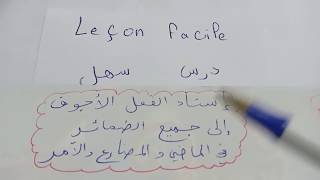 Leçon facile
درس سهل
إسناد الفعل الأجوف
إلى جميع الضمائر
في الماضي والمضارع والأمر